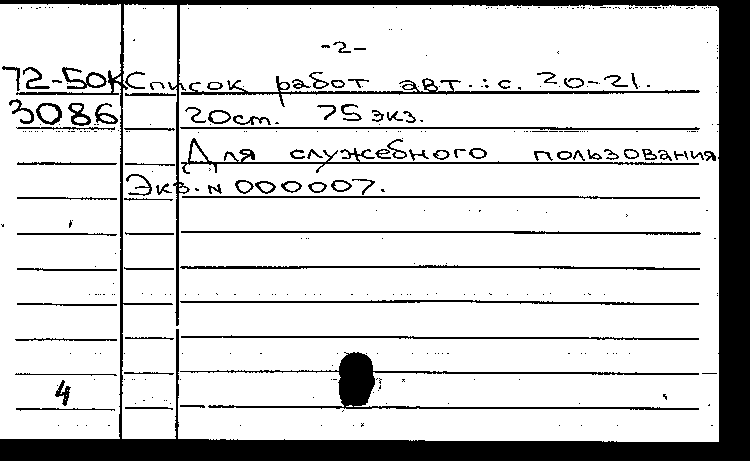 -2-
72-50К Список работ авт.: с. 20-21.
3086 20см. 75 экз.
Для служебного пользования.
Экз. N 000007.
4